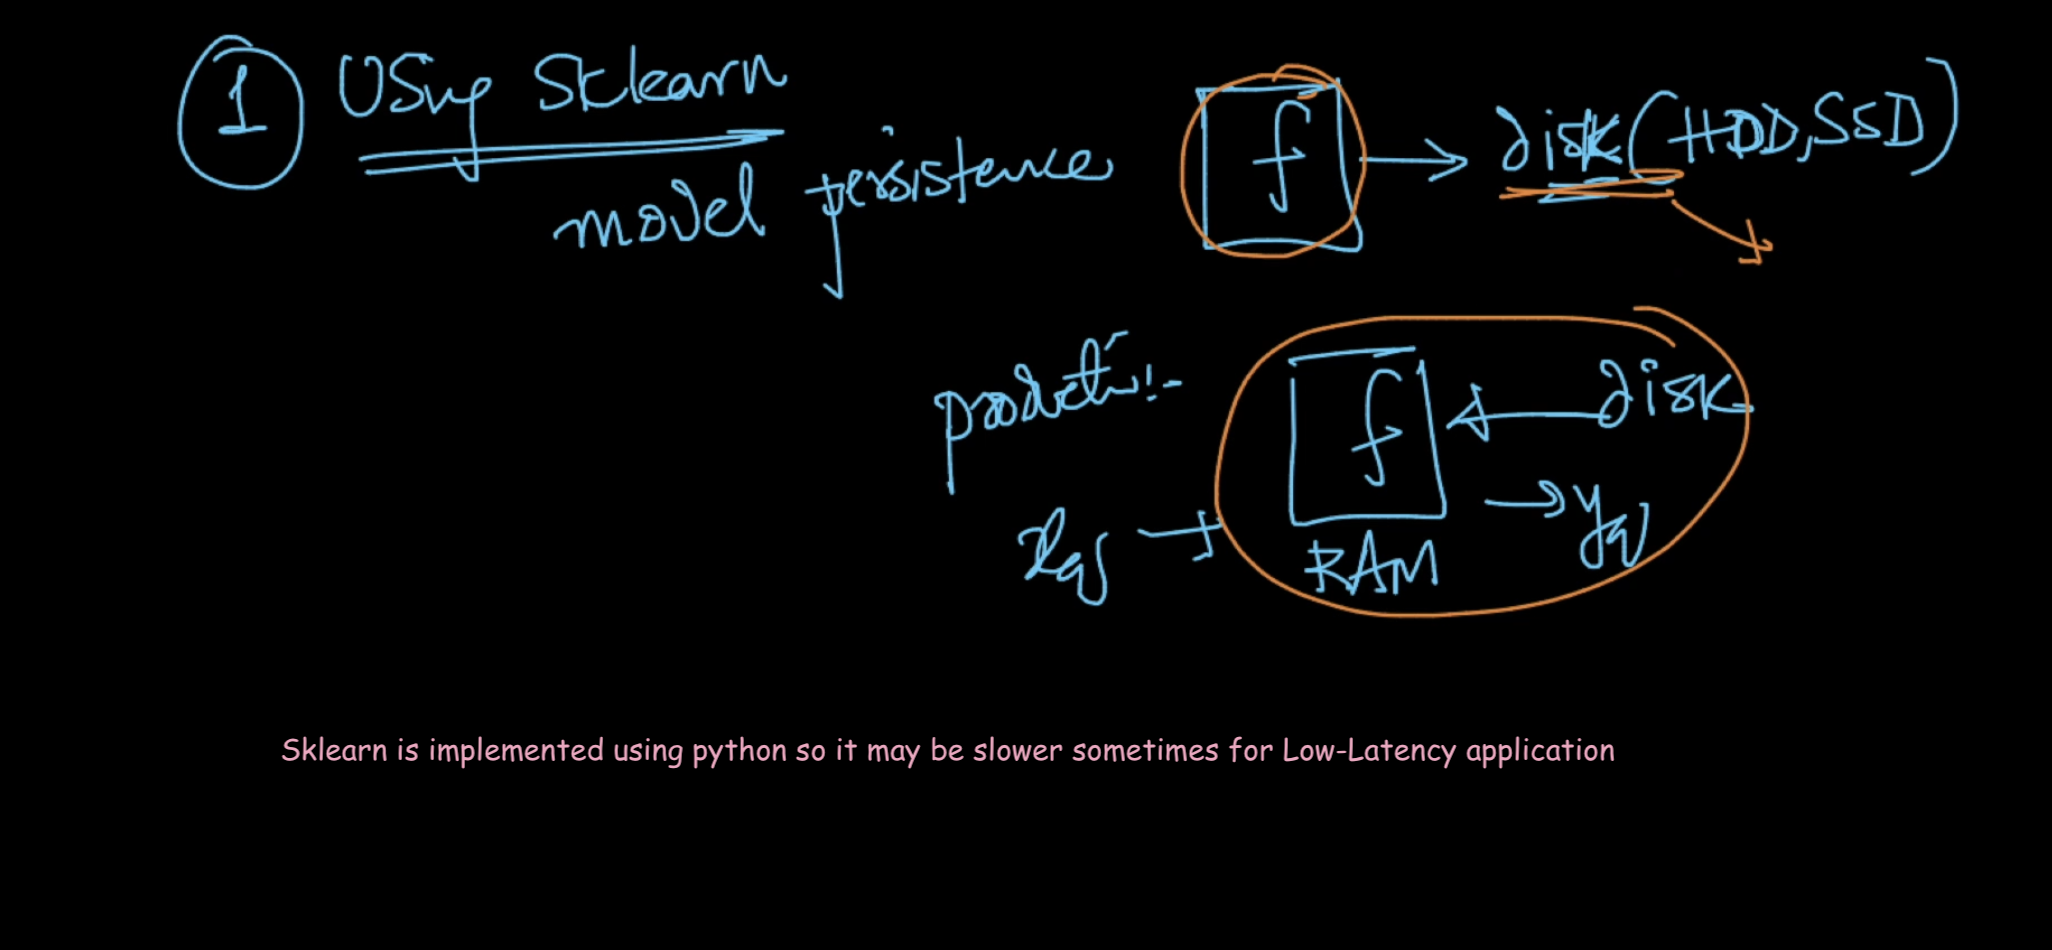 1 Using Sklearn
model persistence
f → disk (HDD, SSD)
productn:-
f ← disk
xq → → yq
RAM
Sklearn is implemented using python so it may be slower sometimes for Low-Latency application